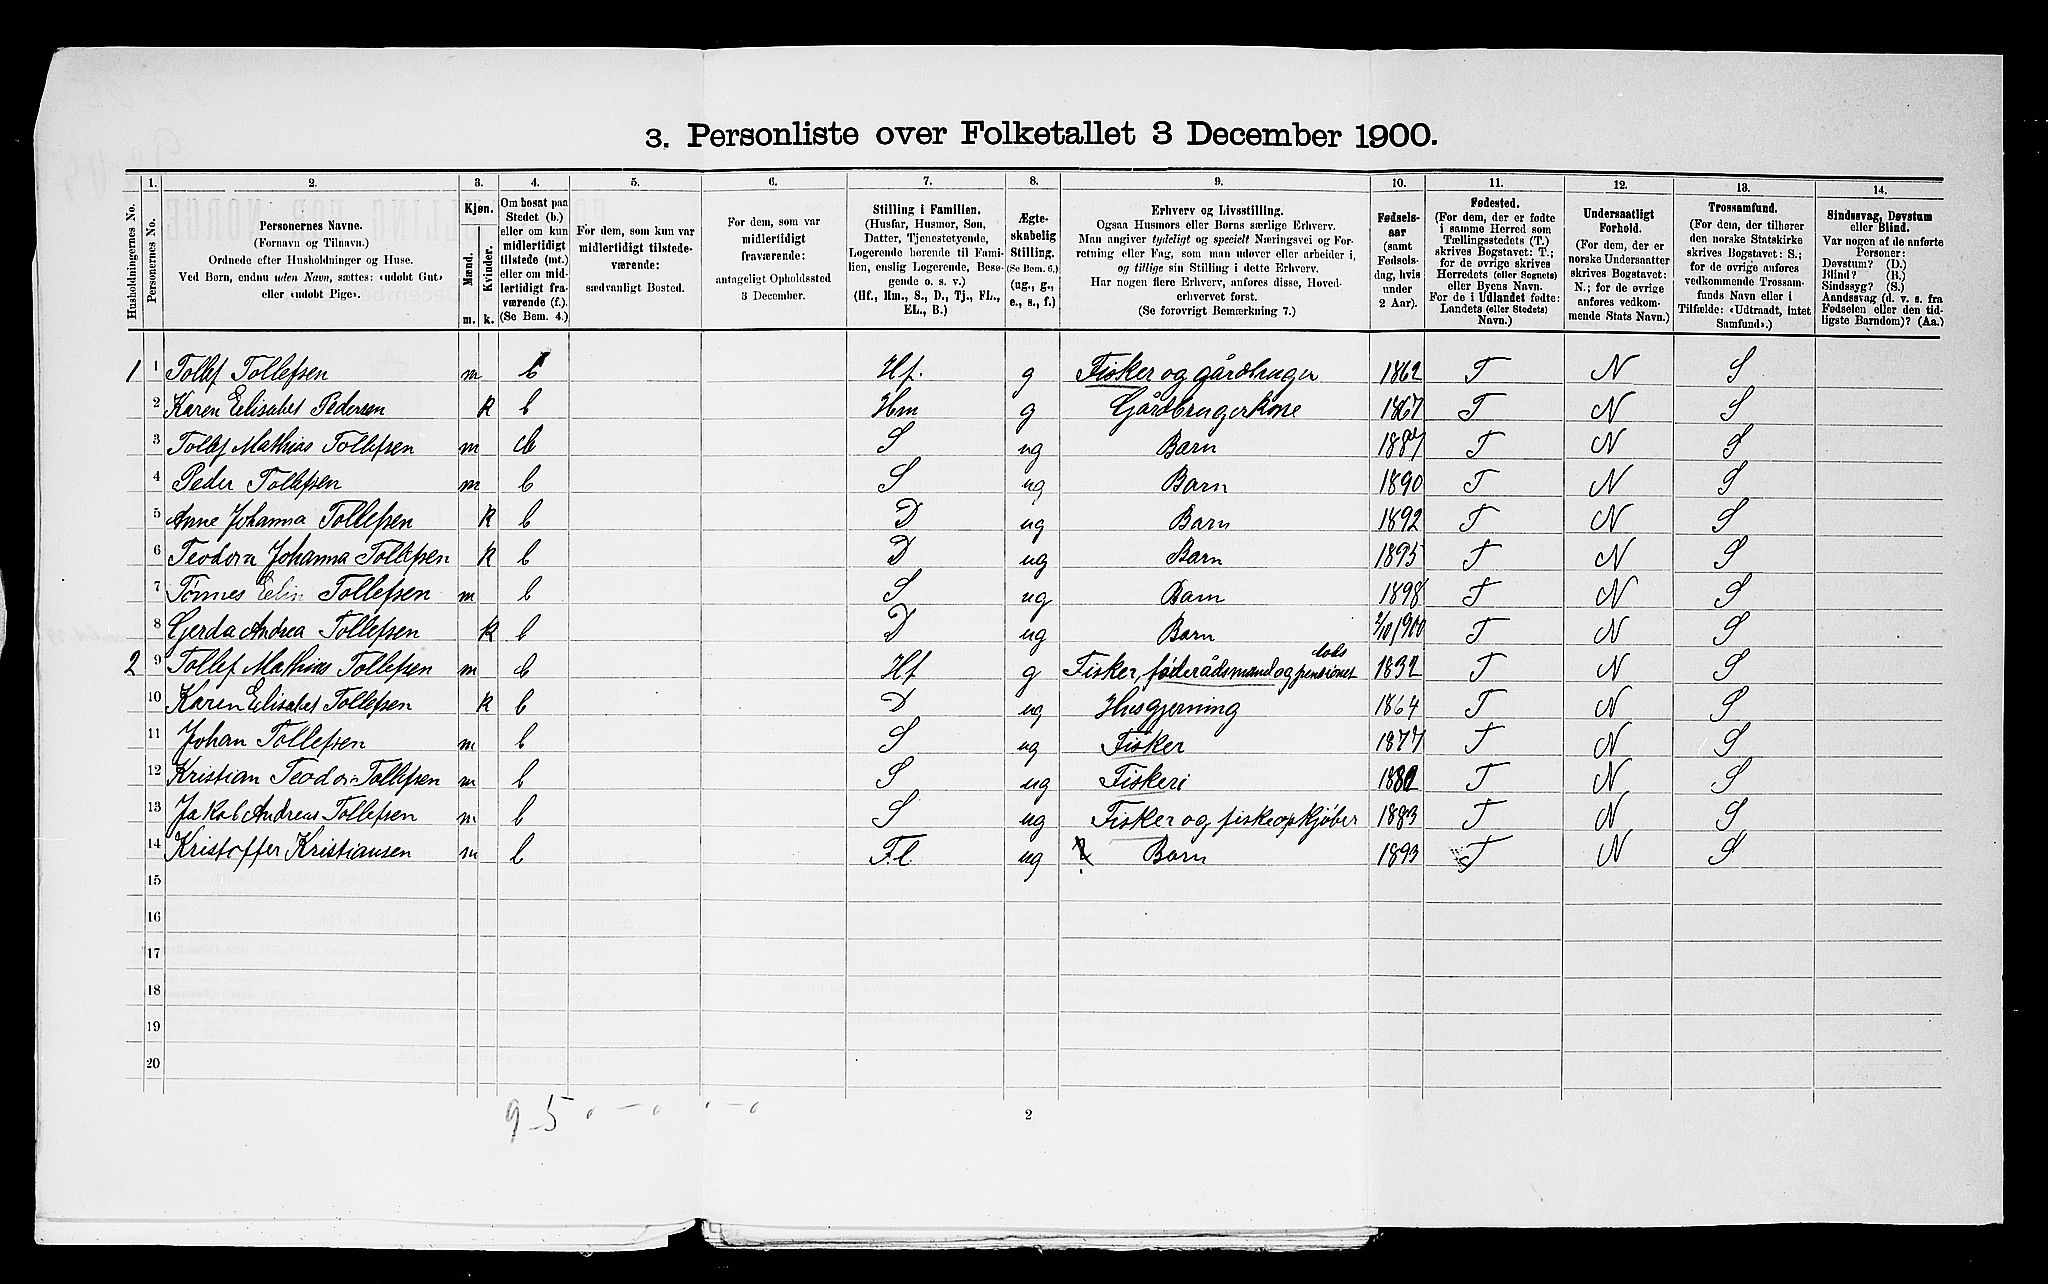 3. Personliste over Folketallet 3 December 1900.
Husholdningernes No.
1.
Personernes No.
2.
Personernes Navne.
(Fornavn og Tilnavn.)
Ordnede efter Husholdninger og Huse.
Ved Børn, endnu uden Navn, sættes: «udøbt Gut»
eller «udøbt Pige».
3.
Kjøn.
Mænd.
Kvinder.
m.
k.
4.
Om bosat paa
Stedet (b.)
eller om kun
midlertidigt
tilstede (mt.)
eller om mid-
lertidigt fra-
værende (f.).
(Se Bem. 4.)
5.
For dem, som kun var
midlertidigt tilstede-
værende:
sædvanligt Bosted.
6.
For dem, som var
midlertidigt
fraværende:
antageligt Opholdssted
3 December.
7.
Stilling i Familien.
(Husfar, Husmor, Søn,
Datter, Tjenestetyende,
Logerende hørende til Fami-
lien, enslig Logerende, Besø-
gende o. s. v.)
(Hf., Hm., S., D., Tj., FL.,
EL., B.)
8.
Ægte-
skabelig
Stilling.
(Se Bem. 6.)
(ug., g.,
e., s., f.)
9.
Erhverv og Livsstilling.
Ogsaa Husmors eller Børns særlige Erhverv.
Man angiver tydeligt og specielt Næringsvei og For-
retning eller Fag, som man udøver eller arbeider i,
og tillige sin Stilling i dette Erhverv.
Har nogen flere Erhverv, anføres disse, Hoved-
erhvervet først.
(Se forøvrigt Bemærkning 7.)
10.
Fødsels-
aar
(samt
Fødsels-
dag, hvis
under
2 Aar).
11.
Fødested.
(For dem, der er fødte
i samme Herred som
Tællingsstedets (T.)
skrives Bogstavet: T.;
for de øvrige skrives
Herredets (eller Sognets)
eller Byens Navn.
For de i Udlandet fødte:
Landets (eller Stedets)
Navn.)
12.
Undersaatligt
Forhold.
(For dem, der er
norske Undersaatter
skrives Bogstavet:
N.; for de øvrige
anføres vedkom-
mende Stats Navn.)
13.
Trossamfund.
(For dem, der tilhører
den norske Statskirke
skrives Bogstavet: S.;
for de øvrige anføres
vedkommende Trossam-
funds Navn eller i
Tilfælde: «Udtraadt, intet
Samfund».)
14.
Sindssvag, Døvstum
eller Blind.
Var nogen af de anførte
Personer:
Døvstum? (D.)
Blind? (B.)
Sindssyg? (S.)
Aandssvag (d. v. s. fra
Fødselen eller den tid-
ligste Barndom)? (Aa.)
1 1 Tollef Tollefsen m b Hf. g Fisker og gårdbruger 1862 T N S
2 Karen Elisabet Pedersen k b Hm g Gårdbrugerkone 1867 T N S
3 Tollef Mathias Tollefsen m b S ug Barn 1887 T N S
4 Peder Tollefsen m b S ug Barn 1890 T N S
5 Anne Johanna Tollefsen k b D ug Barn 1892 T N S
6 Teodora Johanna Tollefsen k b D ug Barn 1895 T N S
7 Tönnes Elin Tollefsen m b S ug Barn 1898 T N S
8 Gerda Andrea Tollefsen k b D ug Barn 2/10 1900 T N S
2 9 Tollef Mathias Tollefsen m b Hf g Fisker, föderådsmand og lods pensionet 1832 T N S
10 Karen Elisabet Tollefsen k b D ug Husgjerning 1864 T N S
11 Johan Tollefsen m b S ug Fisker 1877 T N S
12 Kristian Teodor Tollefsen m b S ug Fiskeri 1880 T N S
13 Jakob Andreas Tollefsen m b S ug Fisker og fiskeopkjöber 1883 T N S
14 Kristoffer Kristiansen m b F.l. ug ? Barn 1893 T N S
15
16
17
18
19
20
9-5 0-0 0-0
2